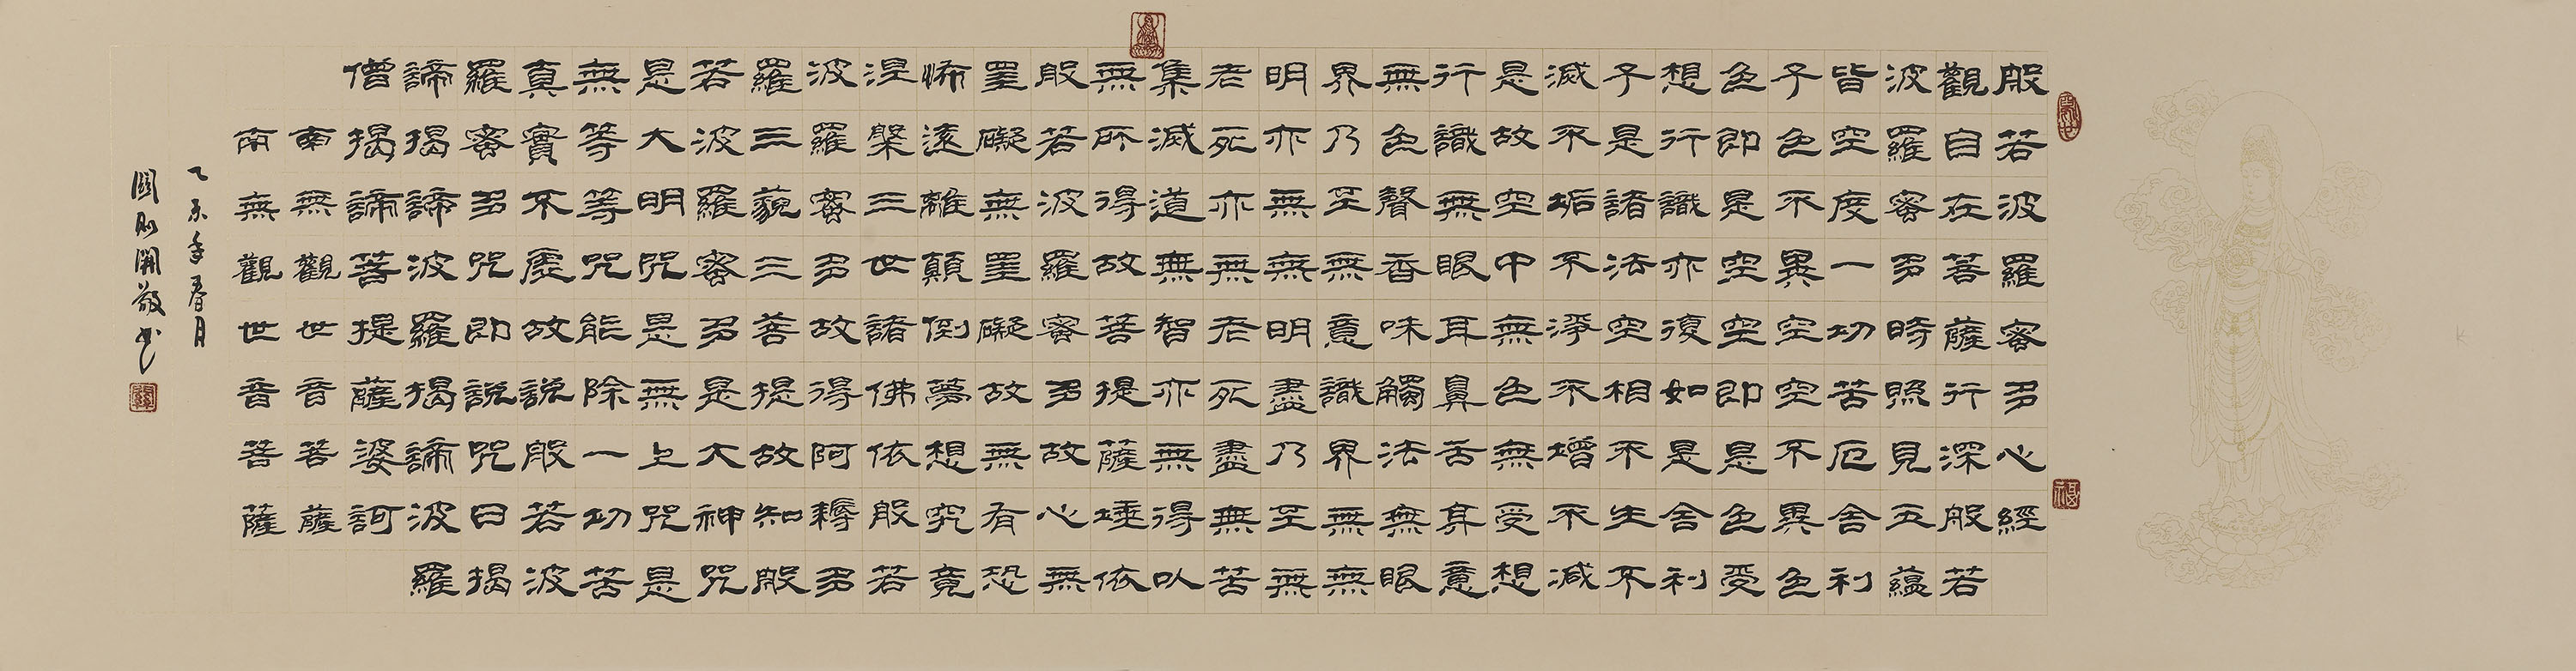 般若波羅蜜多心經
觀自在菩薩行深般若
波羅蜜多時照見五蘊
皆空度一切苦厄舍利
子色不異空空不異色
色即是空空即是色受
想行識亦復如是舍利
子是諸法空相不生不
滅不垢不淨不增不減
是故空中無色無受想
行識無眼耳鼻舌身意
無色聲香味觸法無眼
界乃至無意識界無無
明亦無無明盡乃至無
老死亦無老死盡無苦
集滅道無智亦無得以
無所得故菩提薩埵依
般若波羅蜜多故心無
罣礙無罣礙故無有恐
怖遠離顛倒夢想究竟
涅槃三世諸佛依般若
波羅蜜多故得阿耨多
羅三藐三菩提故知般
若波羅蜜多是大神咒
是大明咒是無上咒是
無等等咒能除一切苦
真實不虛故說般若波
羅蜜多咒即說咒曰揭
諦揭諦波羅揭諦波羅
僧揭諦菩提薩婆訶
南無觀世音菩薩
南無觀世音菩薩
乙未年春月
關開敬書
福